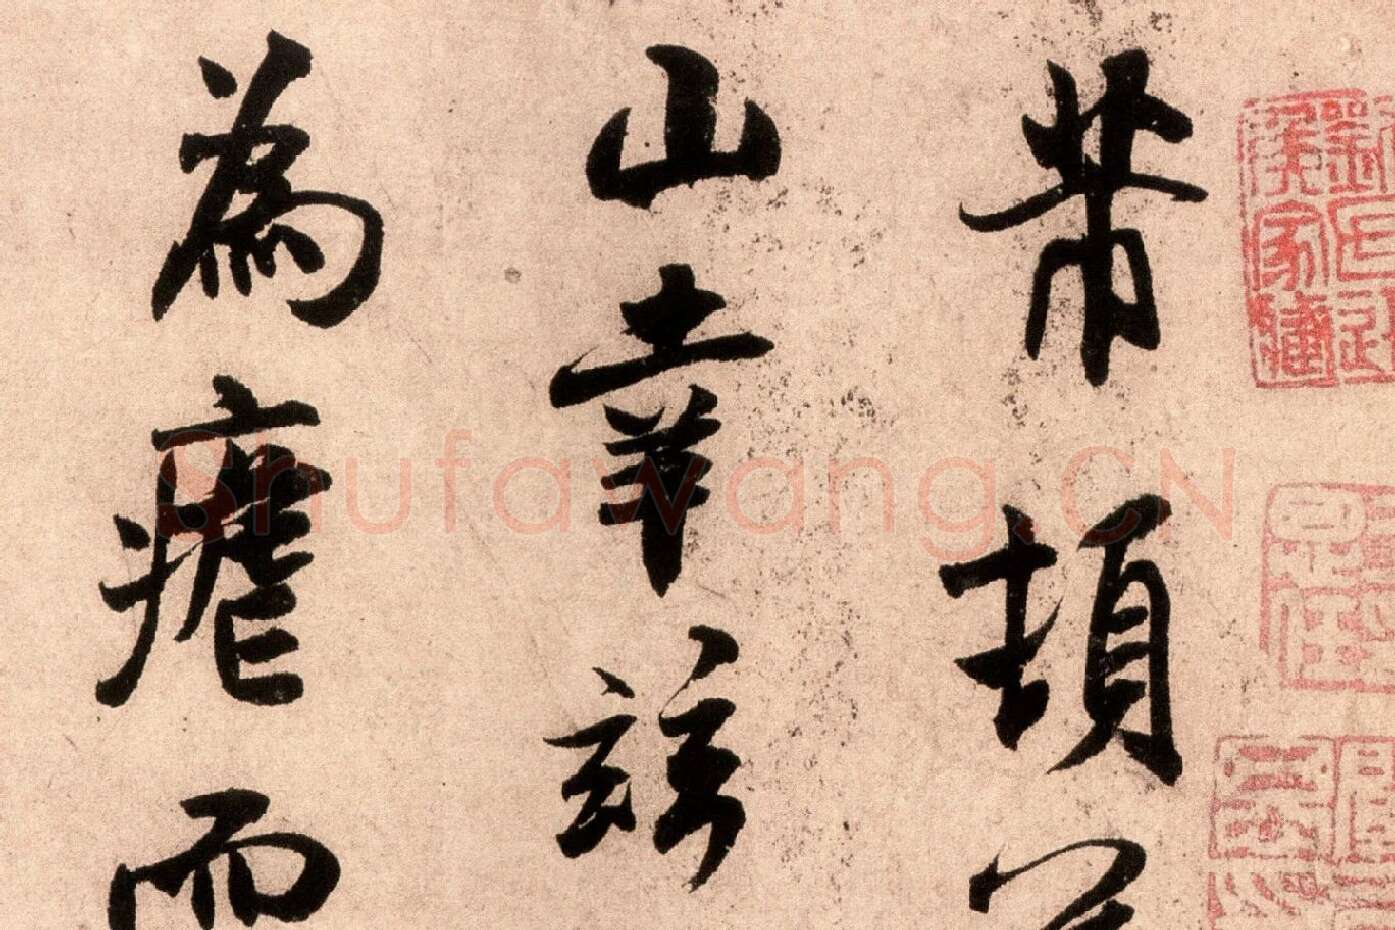 芾頓
山幸兹
為瘧而
Shufawang.CN